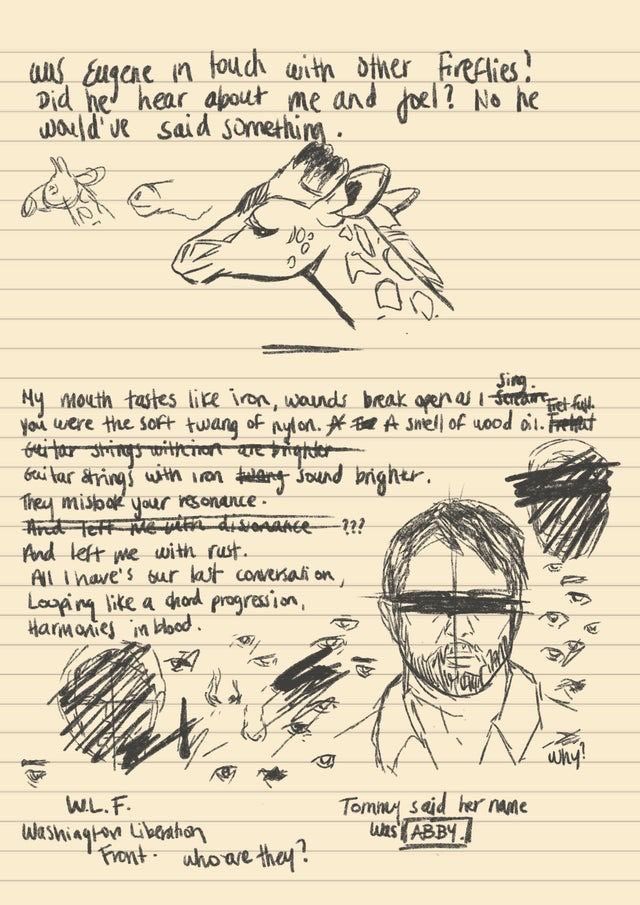 was Eugene in touch with other Fireflies?
Did he hear about me and Joel? No he
would've said something.
My mouth tastes like iron, wounds break open as I scream sing.
you were the soft twang of nylon. A smell of wood oil. Fretfull.
Guitar strings with iron are brighter
Guitar strings with iron twang sound brighter.
They mistook your resonance.
And left me with dissonance ???
And left me with rust.
All I have's our last conversation,
Looping like a chord progression,
Harmonies in blood.
why?
W.L.F.
Washington Liberation
Front. who are they?
Tommy said her name
was ABBY.